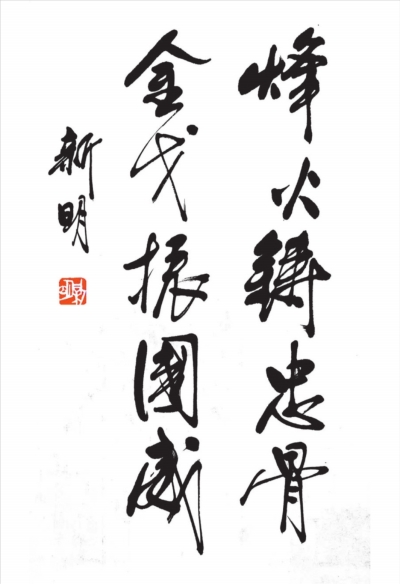 烽火鑄忠骨
金戈振國威
新明